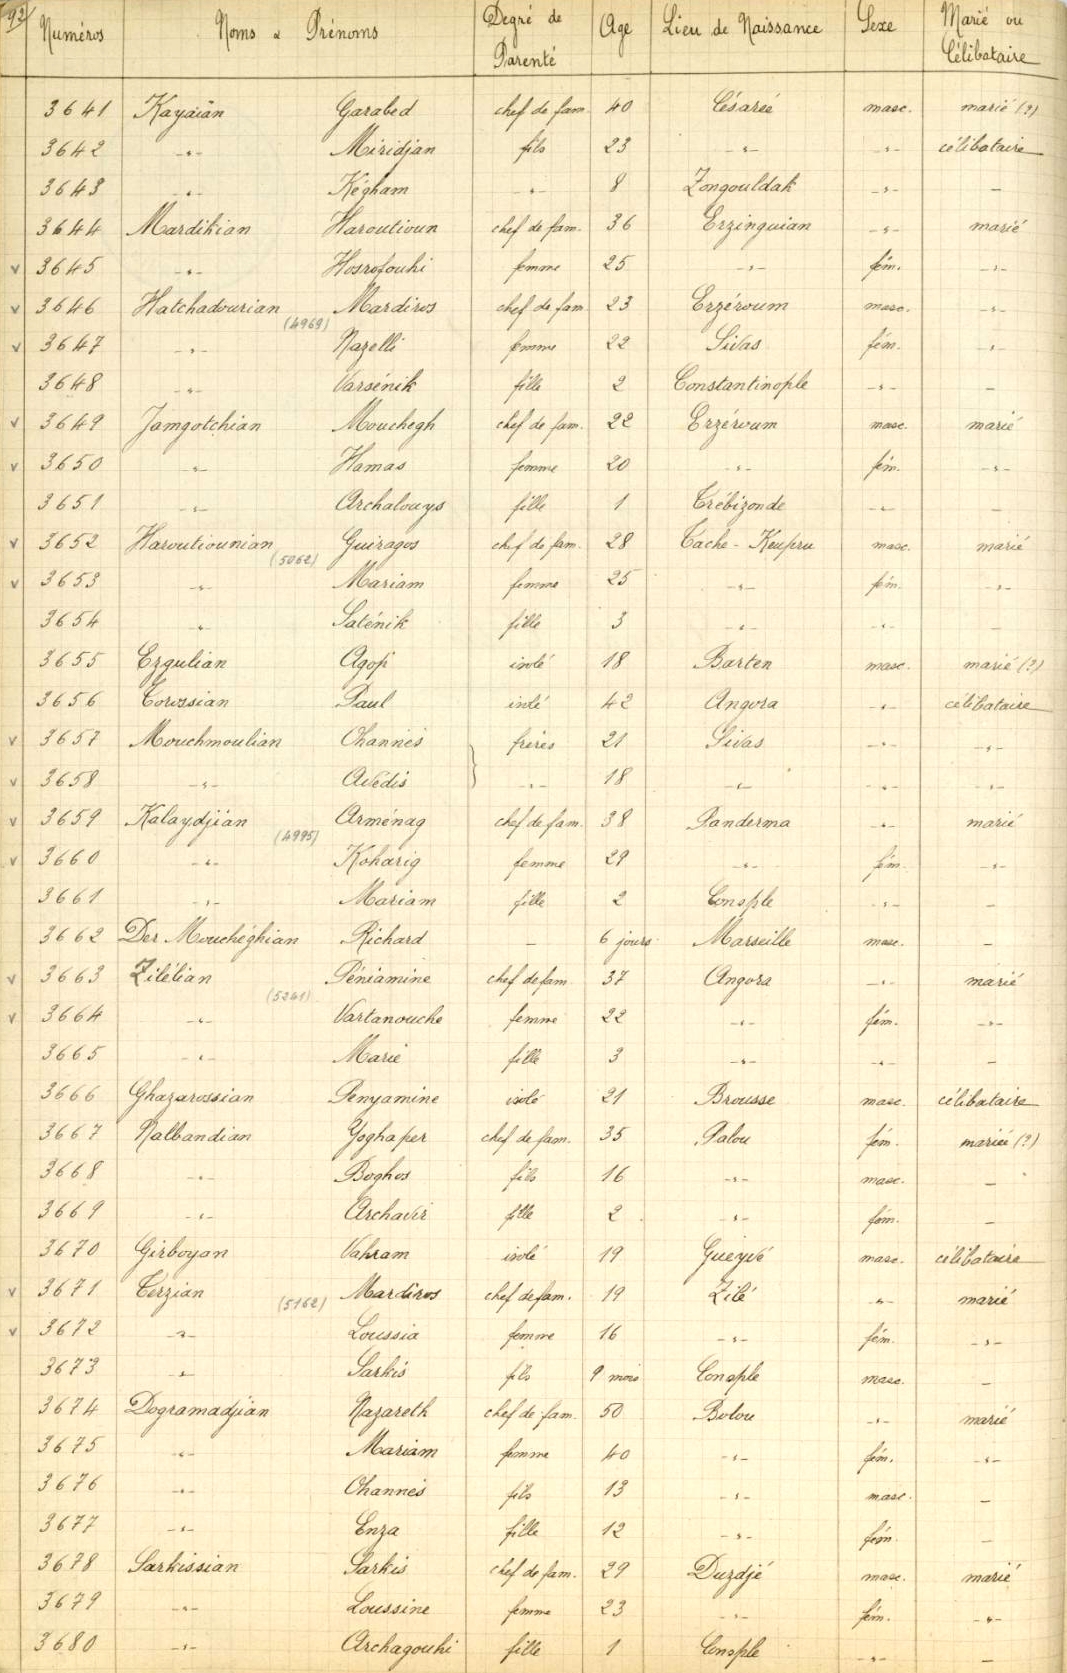 92
Numéros Noms & Prénoms Degré de Parenté Age Lieu de Naissance Sexe Marié ou Célibataire
3641 Kayaïan Garabed chef de fam. 40 Césarée masc. marié (?)
3642 -"- Miridjan fils 23 -"- -"- célibataire
3643 -"- Kégham -"- 8 Zongouldak -"- -
3644 Mardikian Haroutioun chef de fam. 36 Erzinguian -"- marié
v 3645 -"- Hosrofouhi femme 25 -"- fém. -"-
v 3646 Hatchadourian Mardiros chef de fam 23 Erzéroum masc. -"-
(4969)
v 3647 -"- Nazelli femme 22 Sivas fém. -"-
3648 -"- Varsénik fille 2 Constantinople -"- -
v 3649 Jamgotchian Mouchegh chef de fam. 22 Erzéroum masc. marié
v 3650 -"- Hamas femme 20 -"- fém. -"-
3651 -"- Archalouys fille 1 Trébizonde -"- -
v 3652 Haroutiounian Guiragos chef de fam. 28 Tache-Keupru masc. marié
(5062)
v 3653 -"- Mariam femme 25 -"- fém. -"-
3654 -"- Saténik fille 3 -"- -"- -
3655 Ezgulian Agop isolé 18 Barten masc. marié (?)
3656 Torossian Paul isolé 42 Angora -"- célibataire
v 3657 Mouchmoulian Ohannès frères 21 Sivas -"- -"-
v 3658 -"- Avédis -"- 18 -"- -"- -"-
v 3659 Kalaydjian Arménag chef de fam. 38 Panderma -"- marié
(4995)
v 3660 -"- Koharig femme 29 -"- fém. -"-
3661 -"- Mariam fille 2 Consple -"- -
3662 Der Mouchéghian Richard - 6 jours Marseille masc. -
v 3663 Zilélian Péniamine chef de fam 37 Angora -"- marié
(5241)
v 3664 -"- Vartanouche femme 22 -"- fém. -"-
3665 -"- Marie fille 3 -"- -"- -
3666 Ghazarossian Penyamine isolé 21 Brousse masc. célibataire
3667 Nalbandian Yoghaper chef de fam. 35 Palou fém. mariée (?)
3668 -"- Boghos fils 16 -"- masc. -
3669 -"- Archavir fille 2 -"- fém. -
3670 Girboyan Vahram isolé 19 Gueyvé masc. célibataire
v 3671 Terzian Mardiros chef de fam. 19 Zilé -"- marié
(5162)
v 3672 -"- Loussia femme 16 -"- fém. -"-
3673 -"- Sarkis fils 9 mois Consple masc. -
3674 Dogramadjian Nazareth chef de fam. 50 Bolou -"- marié
3675 -"- Mariam femme 40 -"- fém. -"-
3676 -"- Ohannès fils 13 -"- masc. -
3677 -"- Enza fille 12 -"- fém. -
3678 Sarkissian Sarkis chef de fam. 29 Duzdjé masc. marié
3679 -"- Loussine femme 23 -"- fém. -"-
3680 -"- Archagouhi fille 1 Consple -"- -